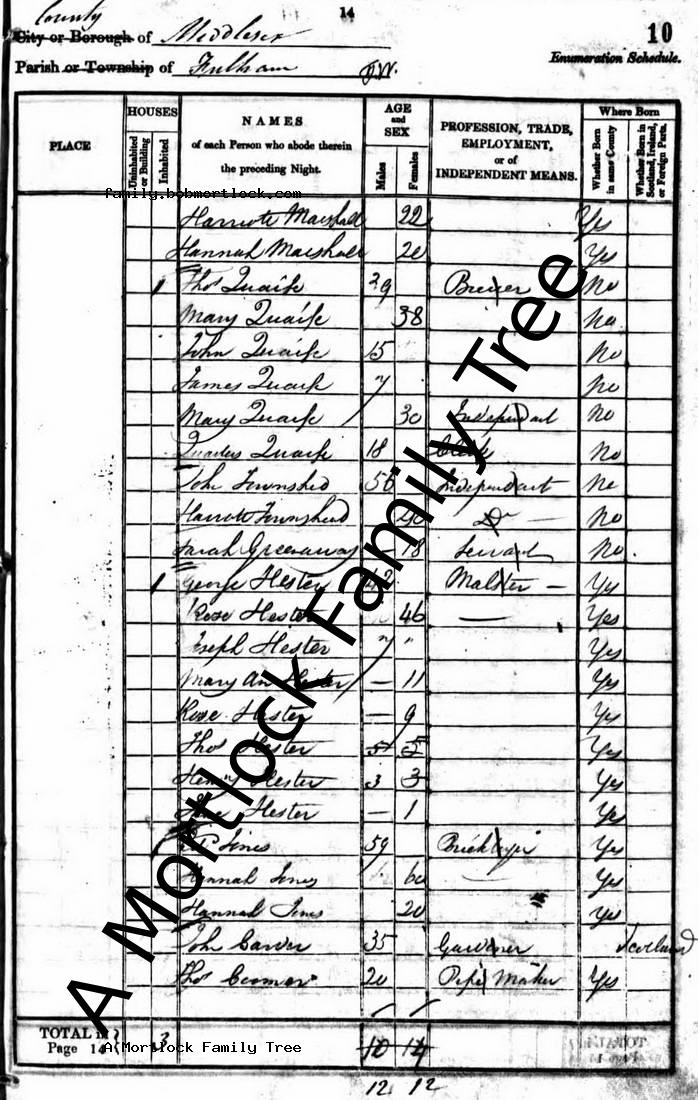 14
County
City or Borough of Middlesex
10
Parish or Township of Fulham
Enumeration Schedule.
PLACE
HOUSES
Uninhabited or Building
Inhabited
NAMES
of each Person who abode therein
the preceding Night.
AGE
and
SEX
Males
Females
PROFESSION, TRADE,
EMPLOYMENT,
or of
INDEPENDENT MEANS.
Where Born
Whether Born in same County
Whether Born in Scotland, Ireland, or Foreign Parts.
family.bobmortlock.com
Marshall 22 Yes
Hannah Marshall 20 Yes
1 Thos Quaife 39 Brewer No
Mary Quaife 38 No
John Quaife 15 No
James Quaife 7 No
Mary Quaife 30 Independant No
Quaife 18 Clerk No
John Townshend Independant No
Townshend No
Sarah Greenaway 18 Servant No
1 George Hester Malster Yes
Rose Hester 46 Yes
Joseph Hester Yes
Mary An Hester 11 Yes
Rose Hester 9 Yes
Thos Hester 5 5 Yes
Henry Hester 3 3 Yes
Hester 1 Yes
59 Bricklayer Yes
Hannah 60 Yes
Hannah 20 Yes
John 35 Gardner Scotland
Thos 20 Pipe Maker Yes
TOTAL in
Page 14
3
12 12
A Mortlock Family Tree
A Mortlock Family Tree